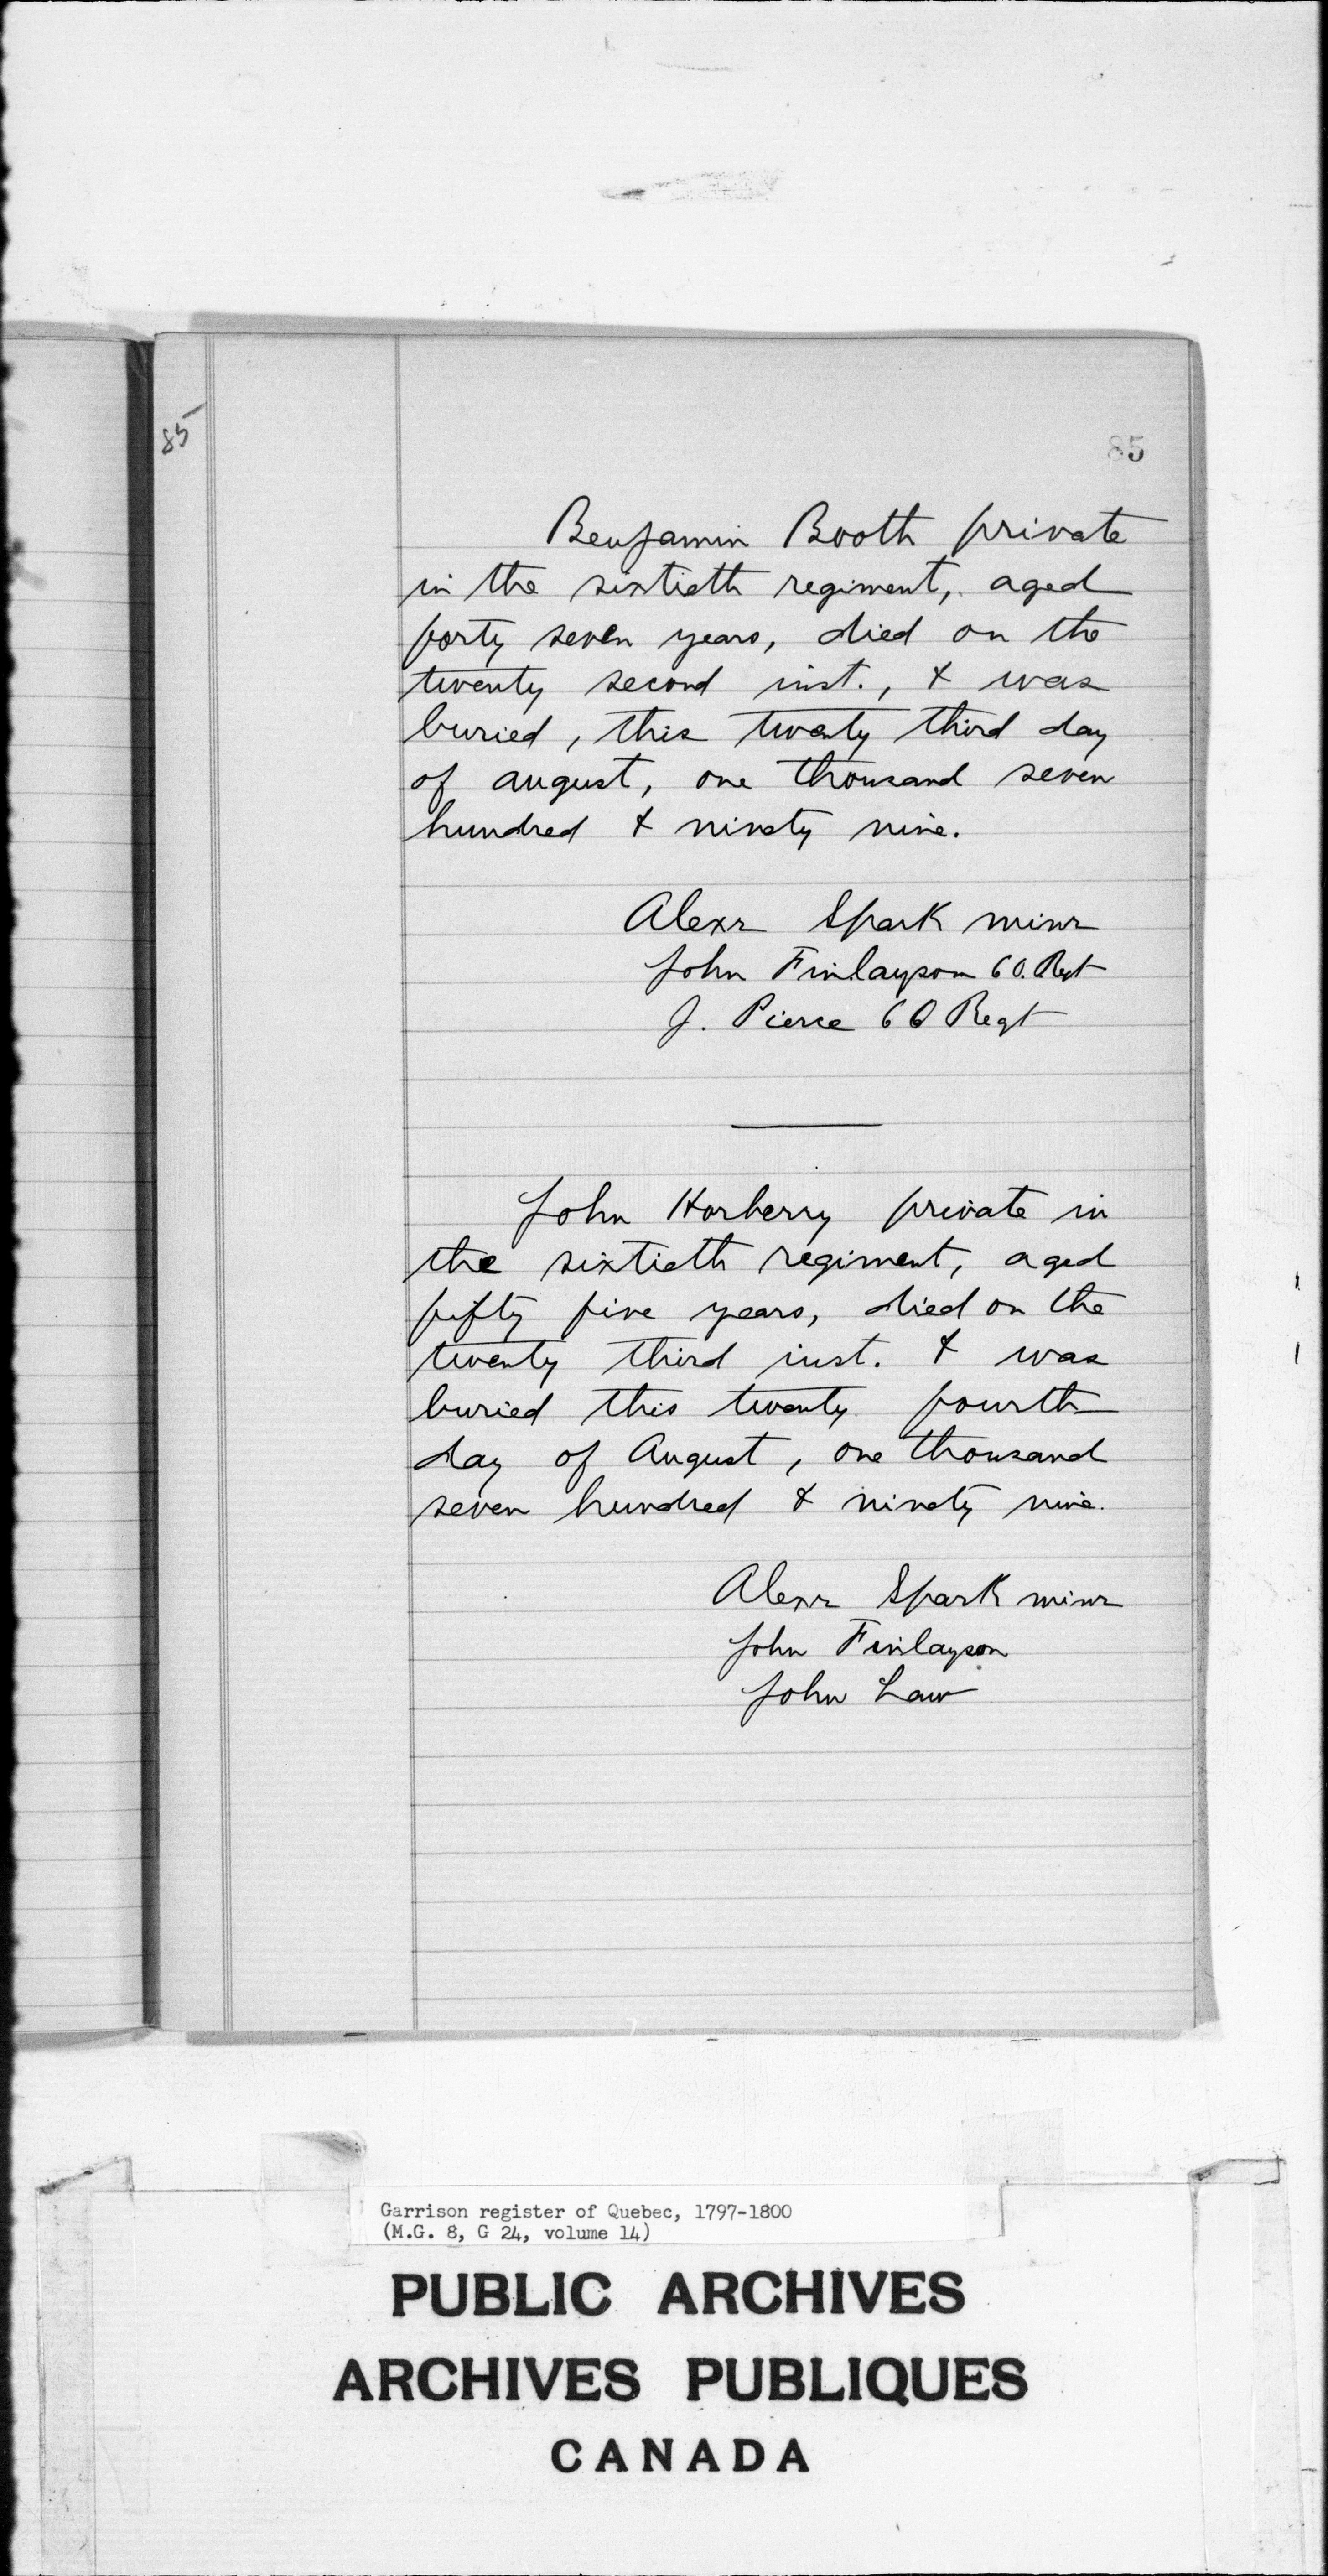 85
85
Benjamin Booth private
in the sixtieth regiment, aged
forty seven years, died on the
twenty second inst., & was
buried, this twenty third day
of august, one thousand seven
hundred & ninety nine.
Alexr Spark minr
John Finlayson 60. Regt
J. Pierce 60 Regt
John Horberry private in
the sixtieth regiment, aged
fifty five years, died on the
twenty third inst. & was
buried this twenty fourth
day of August, one thousand
seven hundred & ninety nine.
Alexr Spark minr
John Finlayson
John Law
Garrison register of Quebec, 1797-1800
(M.G. 8, G 24, volume 14)
PUBLIC ARCHIVES
ARCHIVES PUBLIQUES
CANADA